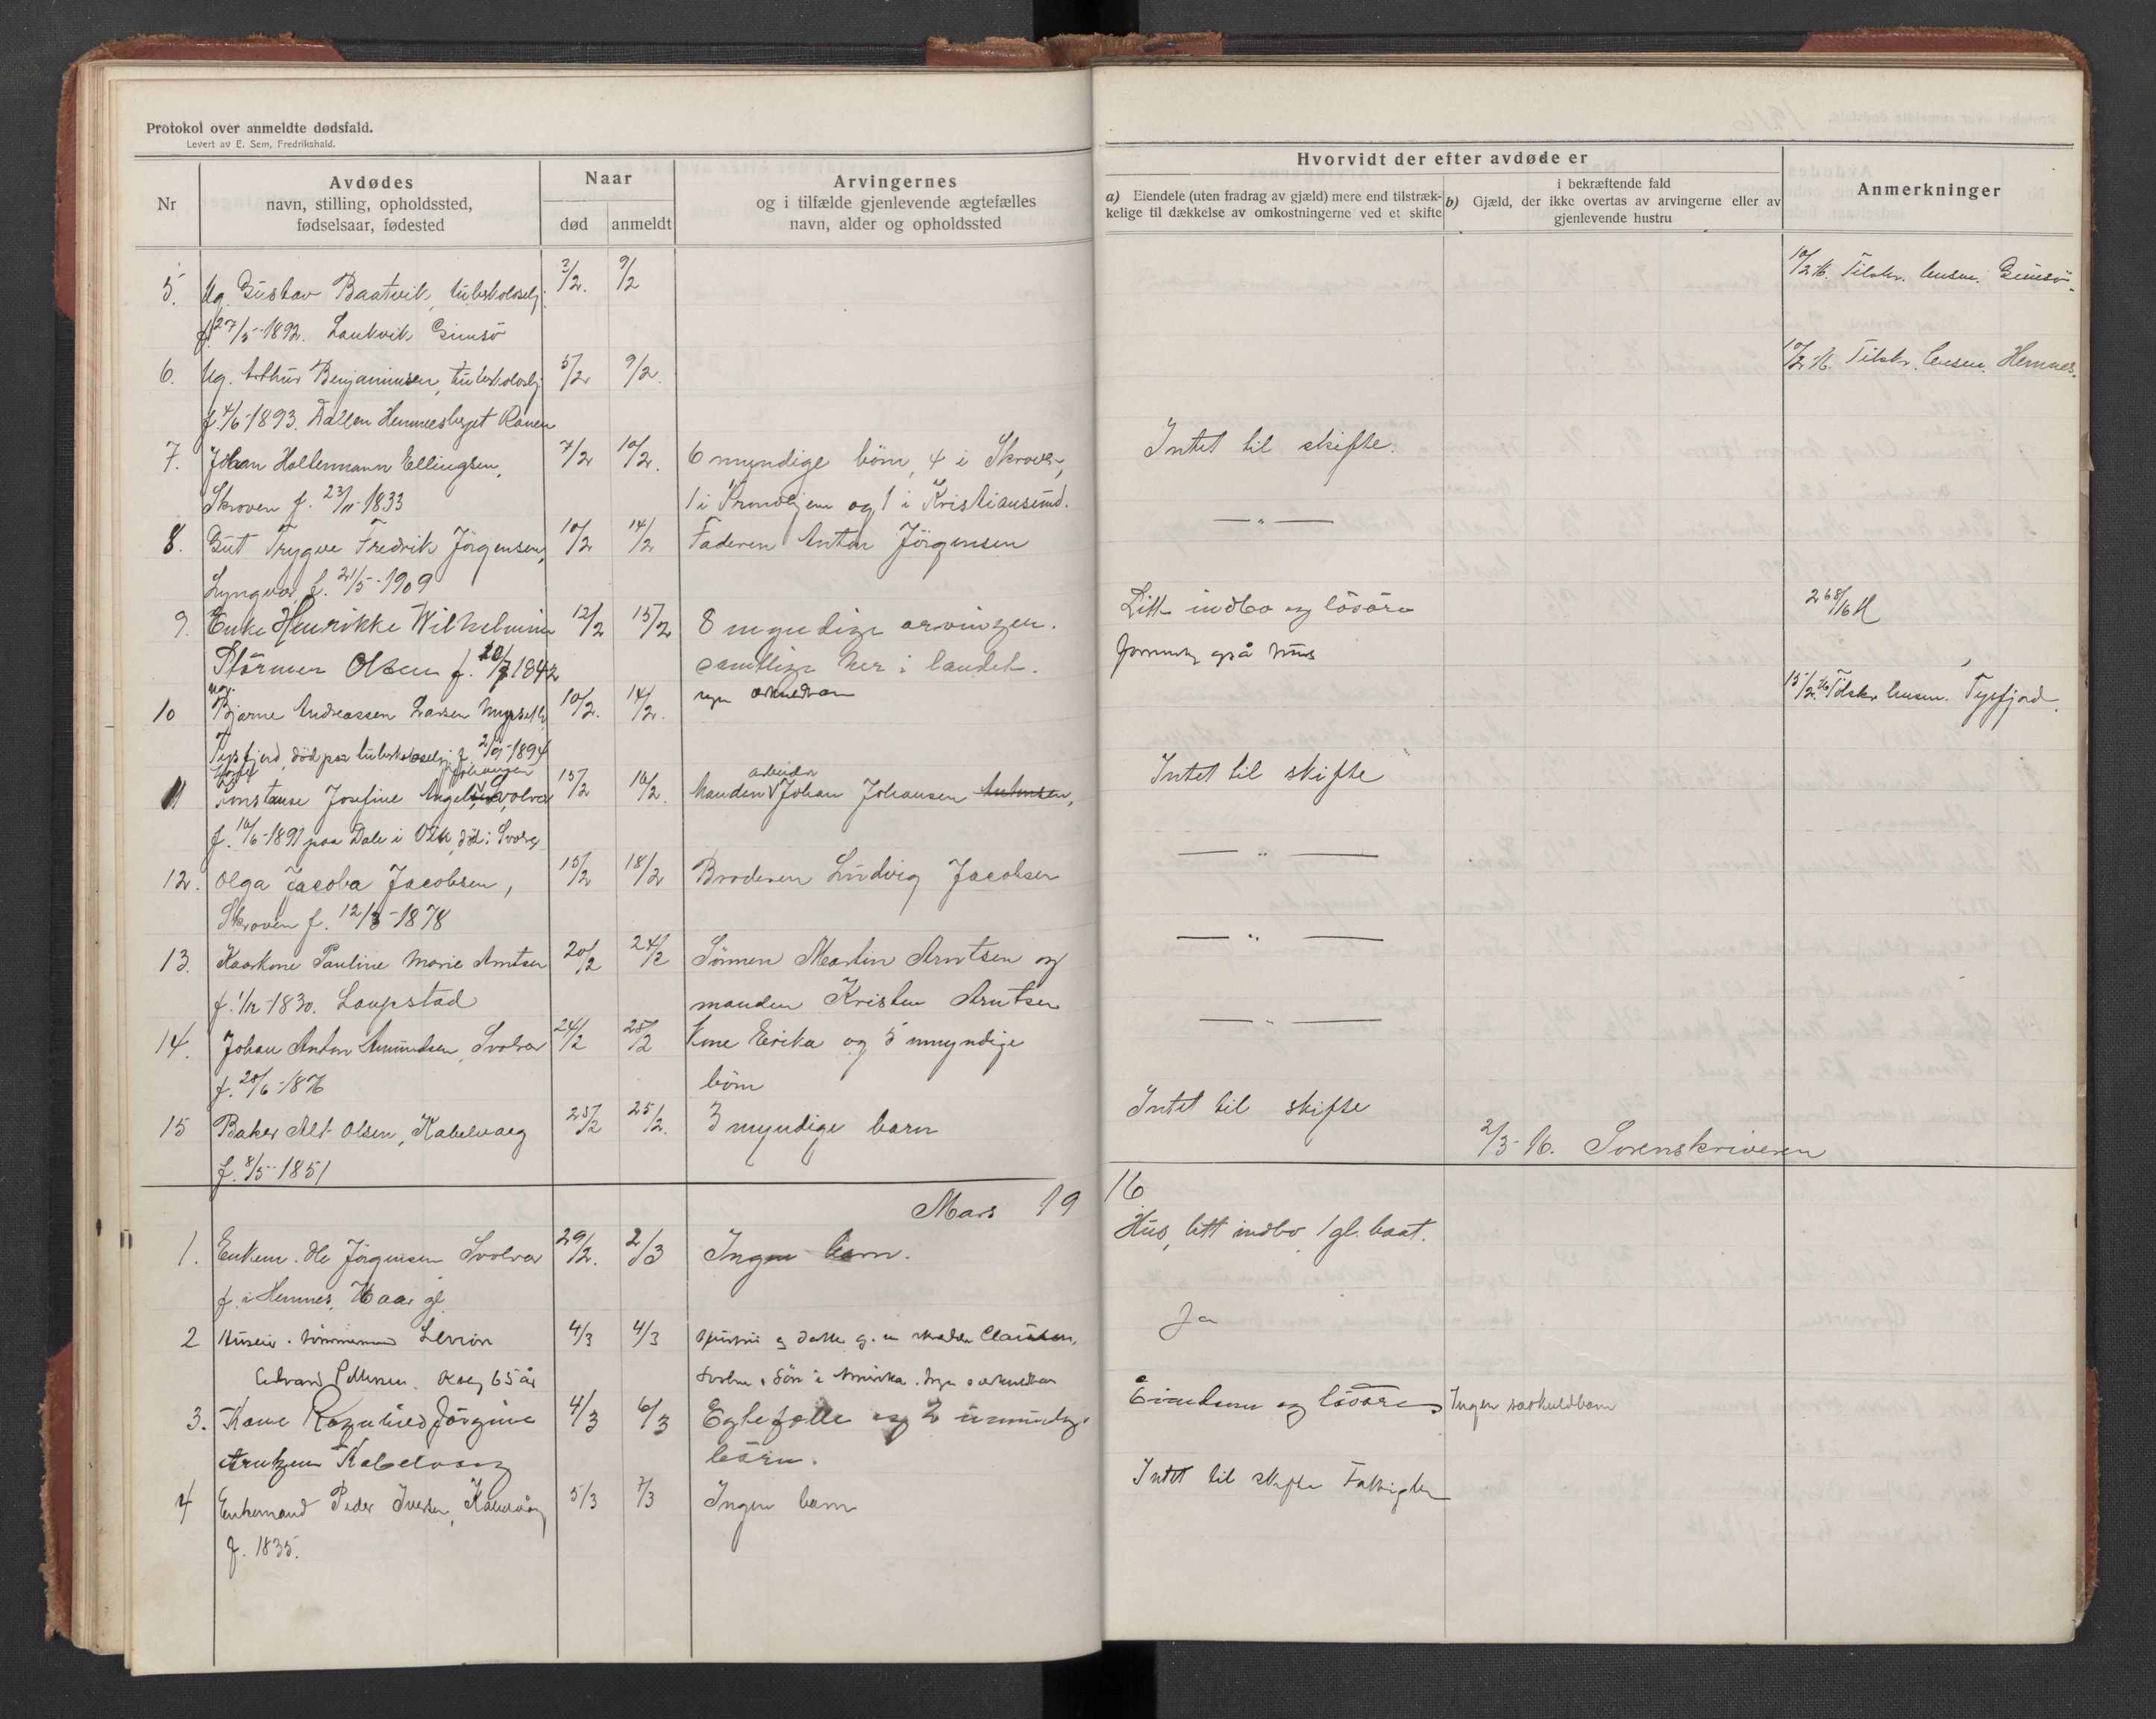 Protokol over anmeldte dødsfald.
Levert av E. Sem, Fredrikshald.
Nr
Avdødes
navn, stilling, opholdssted,
fødselsaar, fødested
Naar
død
anmeldt
Arvingernes
og i tilfælde gjenlevende ægtefælles
navn, alder og opholdssted
Hvorvidt der efter avdøde er
a) Eiendele (uten fradrag av gjæld) mere end tilstræk-
kelige til dækkelse av omkostningerne ved et skifte
i bekræftende fald
b) Gjæld, der ikke overtas av arvingerne eller av
gjenlevende hustru
Anmerkninger
5. Ug. Gustav Baatvik, tuberkoloselj. 2/2. 9/2 10/2 16. Tilskr. lensm. Gimsö.
f. 27/5-1892. Laukvik Gimsö
6. Ug. Arthur Benjaminsen, tuberkoloselj. 5/2 9/2. 10/2 16. Tilskr. lensm. Hemnes.
f. 4/6-1893. Hemnesberget Ranen
7. Johan Holtermann Ellingsen, 7/2 10/2. 6 myndige börn, 4 i Skroven, Intet til skifte.
Skroven f. 23/11-1833 1 i Trondhjem og 1 i Kristiansund.
8. Gut Trygve Fredrik Jörgensen, 10/2 14/2 Faderen Anton Jörgensen — " —
Lyngvær f. 21/5-1909
9. Enke Henrikke Wilhelmine 12/2 15/2 8 myndige arvinger. Litt indbo og lösöre
Störmer Olsen f. 20/7 1842 samtlige her i landet. på hus
10 ug. Bjarne Andreassen Larsen 10/2. 14/2. ingen særkuldbarn 15/2 16 Tilskr lensm. Tysfjord.
Tysfjord, död paa tuberkoloselj. f. 2/9-1894
11 Konstanse Josefine Johansen Svolvær 15/2 16/2. Manden arbeider Johan Johansen Antonsen, Intet til skifte
f. 16/6-1891 paa Dale i död i Svolvær
12. Olga Jacoba Jacobsen, 15/2 18/2 Broderen Ludvig Jacobsen — " —
Skroven f. 12/3-1878
13. Kaarkone Pauline Marie Arntsen 20/2 24/2 Sönnen Martin Arntsen og — " —
f. 1/12-1830. Laupstad manden Kristen Arntsen
14. Johan Anton Amundsen, Svolvær 24/2 25/2 Kone Erika og 5 umyndige — " —
f. 28/6-1876 börn
15 Baker Alf Olsen, Kabelvaag 25/2 25/2. 3 myndige barn Intet til skifte
f. 8/5-1851 2/3-16. Sorenskriveren
Mars 1916
1. Enkem. Ole Jörgensen Svolvær 29/2. 2/3 Ingen barn. Hus, litt indbo, 1 gl. baat.
f. i Hemnes, aar gl.
2 Huseier. tömmermand 4/3 4/3 Ja
Edvard Pettersen. 65 år Sön i Amerika.
3. Kone Ragnhild Jörgine 4/3 6/3 Egtefælle og 2 umyndige Eiendom og lösöre Ingen særkuldbarn
Arntzen Kabelvaag börn.
4 Enkemand Peder Iversen, Kabelvåg 5/3 7/3 Ingen barn Intet til skifte Fattiglem
f. 1835.